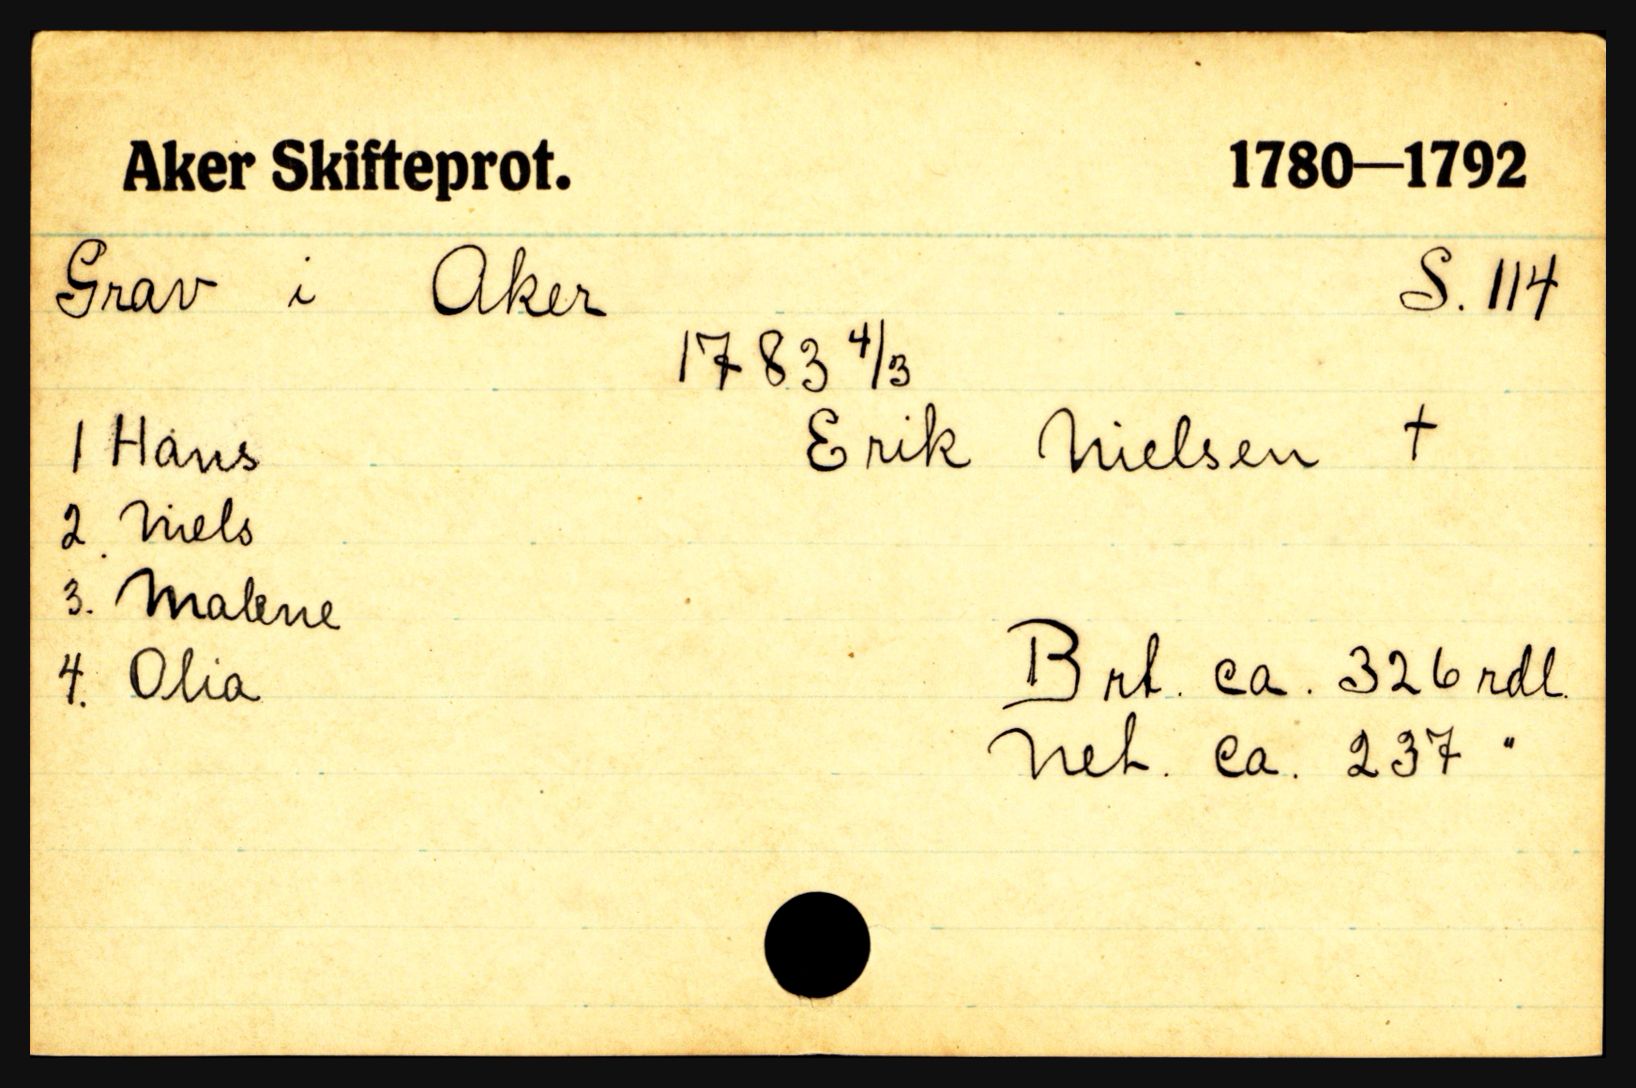 Aker Skifteprot. 1780—1792
Grav i Aker S. 114
1783 4/3
1 Hans Erik Nielsen †
2. Niels
3. Malene
4. Olia Brt. ca. 326 rdl.
Net. ca. 237 "